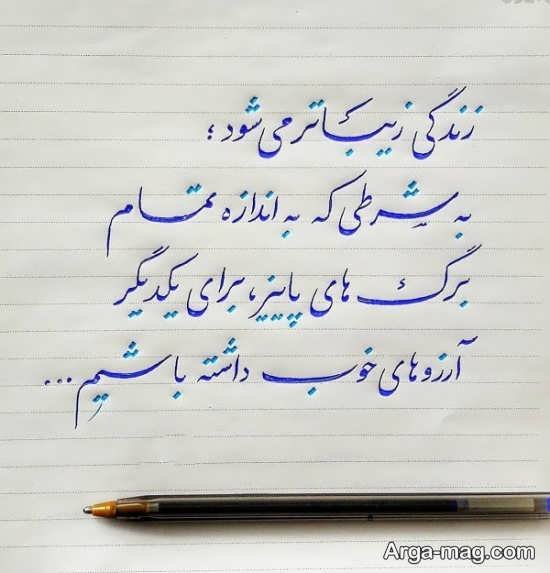 زندگی زیباتر می‌شود؛
به شرطی که به اندازه تمام
برگ های پاییز، برای یکدیگر
آرزوهای خوب داشته باشیم...
Arga-mag.com